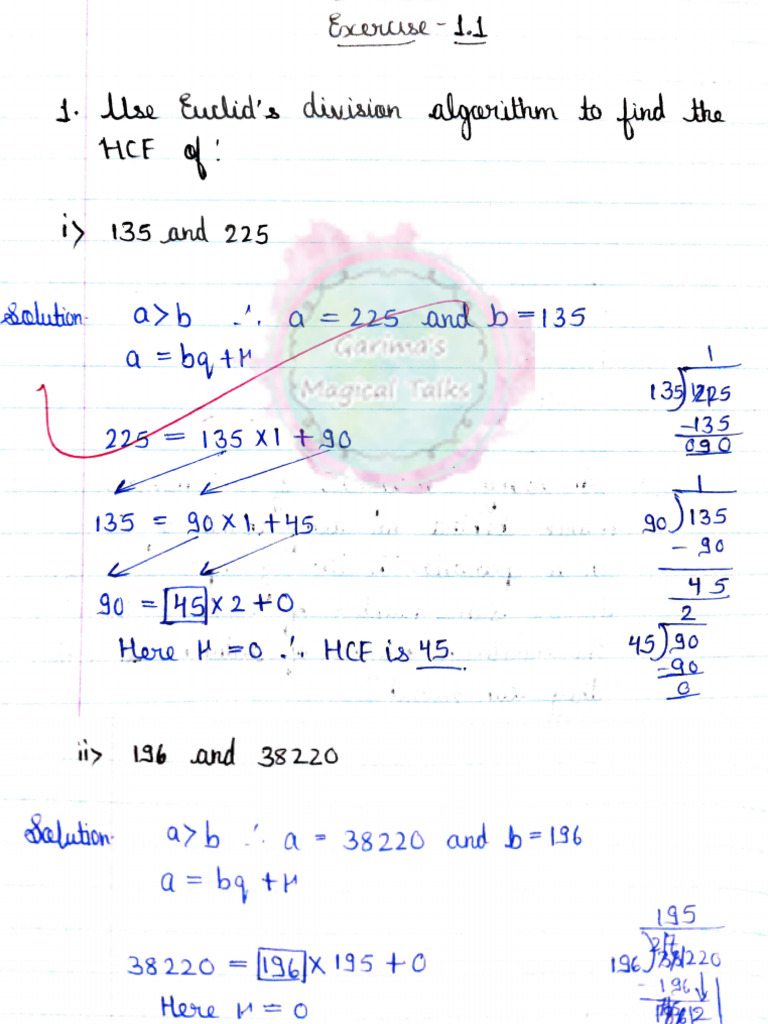 Exercise - 1.1
1. Use Euclid's division algorithm to find the
HCF of:
i> 135 and 225
Solution- a>b ∴ a = 225 and b = 135
a = bq + r
Garima's
Magical Talks
225 = 135 × 1 + 90
1
135)225
-135
090
135 = 90 × 1 + 45
1
90)135
- 90
45
90 = 45 × 2 + 0
2
45)90
-90
0
Here r = 0 ∴ HCF is 45.
ii> 196 and 38220
Solution- a>b ∴ a = 38220 and b = 196
a = bq + r
38220 = 196 × 195 + 0
195
196)38220
- 196
Here r = 0